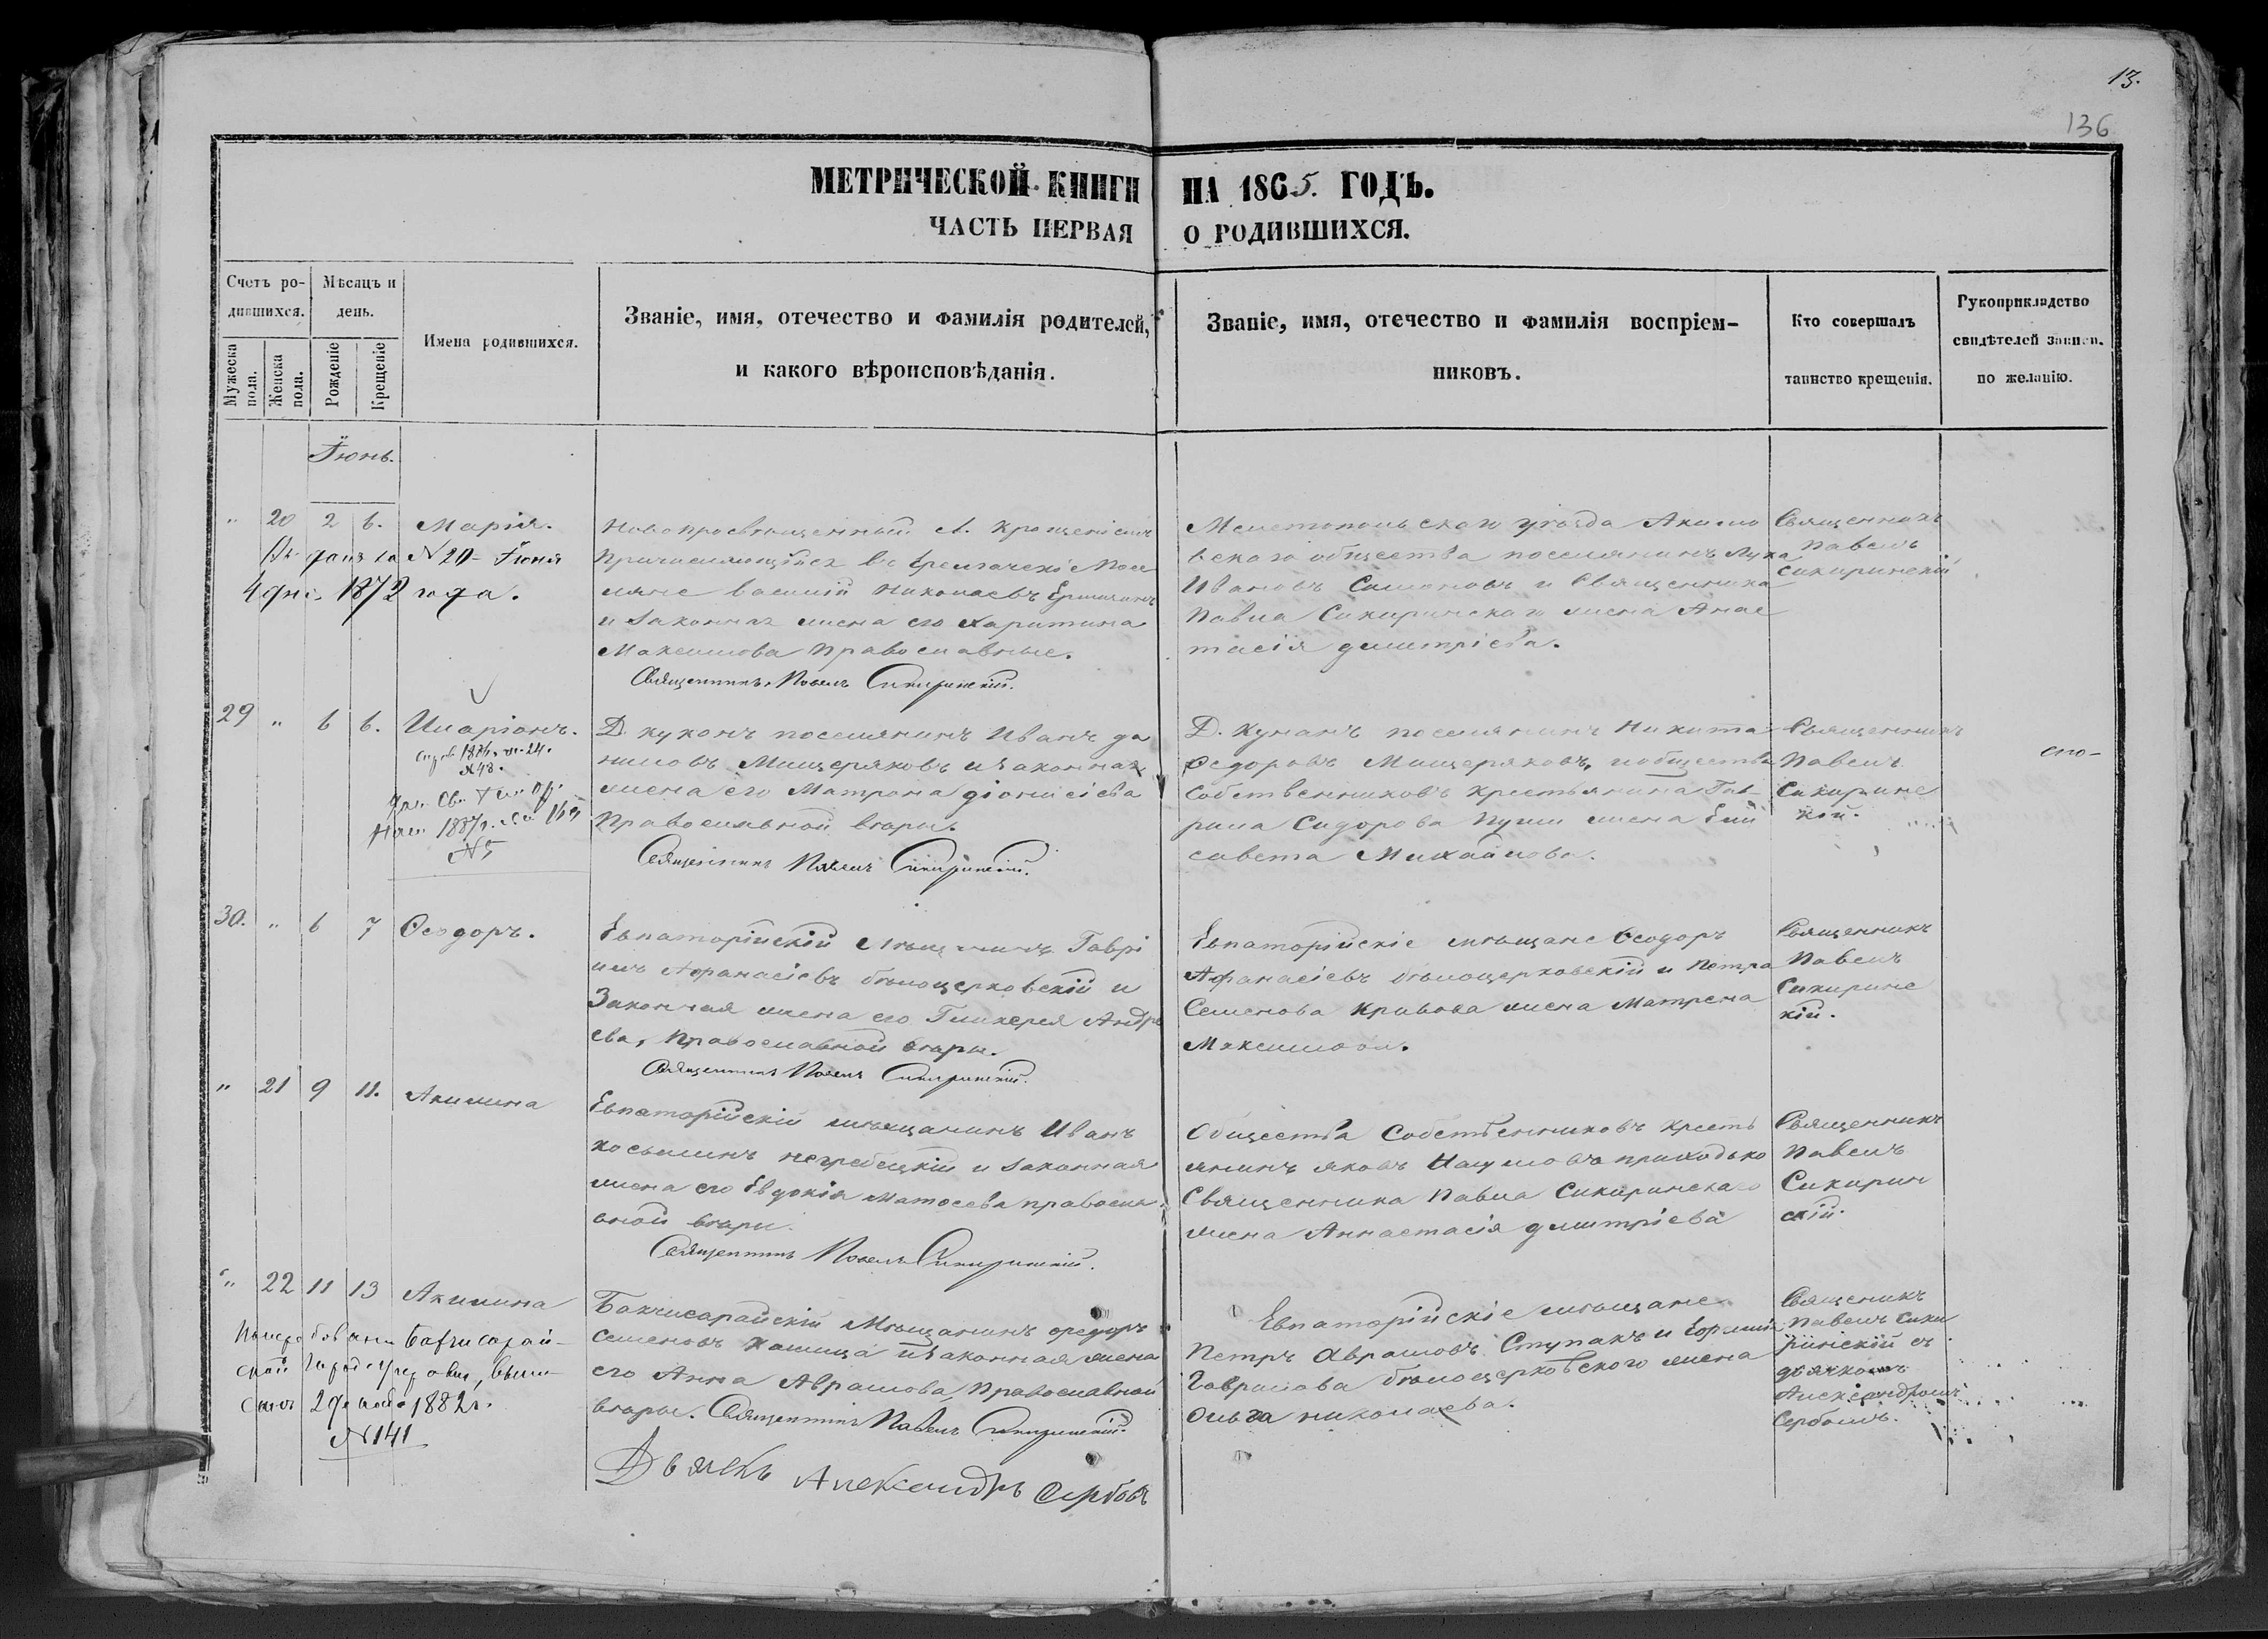 13.
136
МЕТРИЧЕСКОЙ КНИГИ НА 1865. ГОДЪ.
ЧАСТЬ ПЕРВАЯ О РОДИВШИХСЯ.
Счетъ ро-
дившихся.
Мужеска
пола.
Женска
пола.
Мѣсяцъ и
день.
Рожденіе
Крещеніе
Имена родившихся.
Званіе, имя, отчество и фамилія родителей,
и какого вѣроисповѣданія.
Званіе, имя, отечество и фамилія воспріем-
никовъ.
Кто совершалъ
таинство крещенія.
Рукоприкладство
свидѣтелей записи.
по желанію.
Іюнь.
" 20 2 6. Марія.
N 20 Іюня
4 дня 1872 года.
Новопросвященный Св. Крещеніемъ
Причисляющійся въ
Василій Николаевъ
и законная жена его Харитина
Максимова Православные.
Священникъ Павелъ Сикиринскій.
Мелитопольскаго уѣзда Акимо
вскаго общества поселянинъ Лука
Ивановъ Симоновъ и Священника
Павла Сикиринскаго жена Анас
тасія Димитріева.
Священникъ
Павелъ
Сикиринскій
29 " 6 6. Иларіонъ.
N 5
Д. Куконъ поселянинъ Иванъ Да
ниловъ Мищеряковъ и законная
жена его Матрона Діонисіева
Православной вѣры.
Священникъ Павелъ Сикиринскій.
Д. Кунанъ поселянинъ Никита
Федоровъ Мищеряковъ, и общества
Собственниковъ крестьянина Гав-
рила Сидорова жена Ели
савета Михайлова.
Священникъ
Павелъ
Сикиринс
кій.
30. " 6 7 Ѳеодоръ.
Евпаторійскій мѣщанинъ Гаврі
илъ Афанасіевъ бѣлоцерковскій и
Законная жена его Гликерея Андре
ева, Православной вѣры.
Священникъ Павелъ Сикиринскій.
Евпаторійскіе мѣщане Ѳеодоръ
Афанасіевъ бѣлоцерковскій и Петра
Семенова Кривова жена Матрена
Максимова.
Священникъ
Павелъ
Сикиринс
кій.
" 21 9 11. Акилина
Евпаторійскій мѣщанинъ Иванъ
Косьминъ Негребецкій и законная
жена его Евдокія Матоеева правосла
вной вѣры.
Священникъ Павелъ Сикиринскій.
Общества Собственниковъ кресть
янинъ Яковъ Наумовъ Приходько
Священника Павла Сикиринскаго
жена Аннастасія Димитріева
Священникъ
Павелъ
Сикирин
скій.
" 22 11 13 Акилина
Бахчисарай-
ской Город.
1882 г.
N 141
Бакчисарайскій Мѣщанинъ Ѳредоръ
Семеновъ и законная жена
его Анна Аврамова, Православной
вѣры. Священникъ Павелъ Сикиринскій.
Дьячекъ Александръ Сербовъ
Евпаторійскіе мѣщане
Петръ Аврамовъ Ступакъ и
Гаврилова бѣлоцерковского жена
Ольга Николаева.
Священикъ
Павелъ Сики
ринскій съ
дьячкомъ
Александромъ
Сербовымъ.